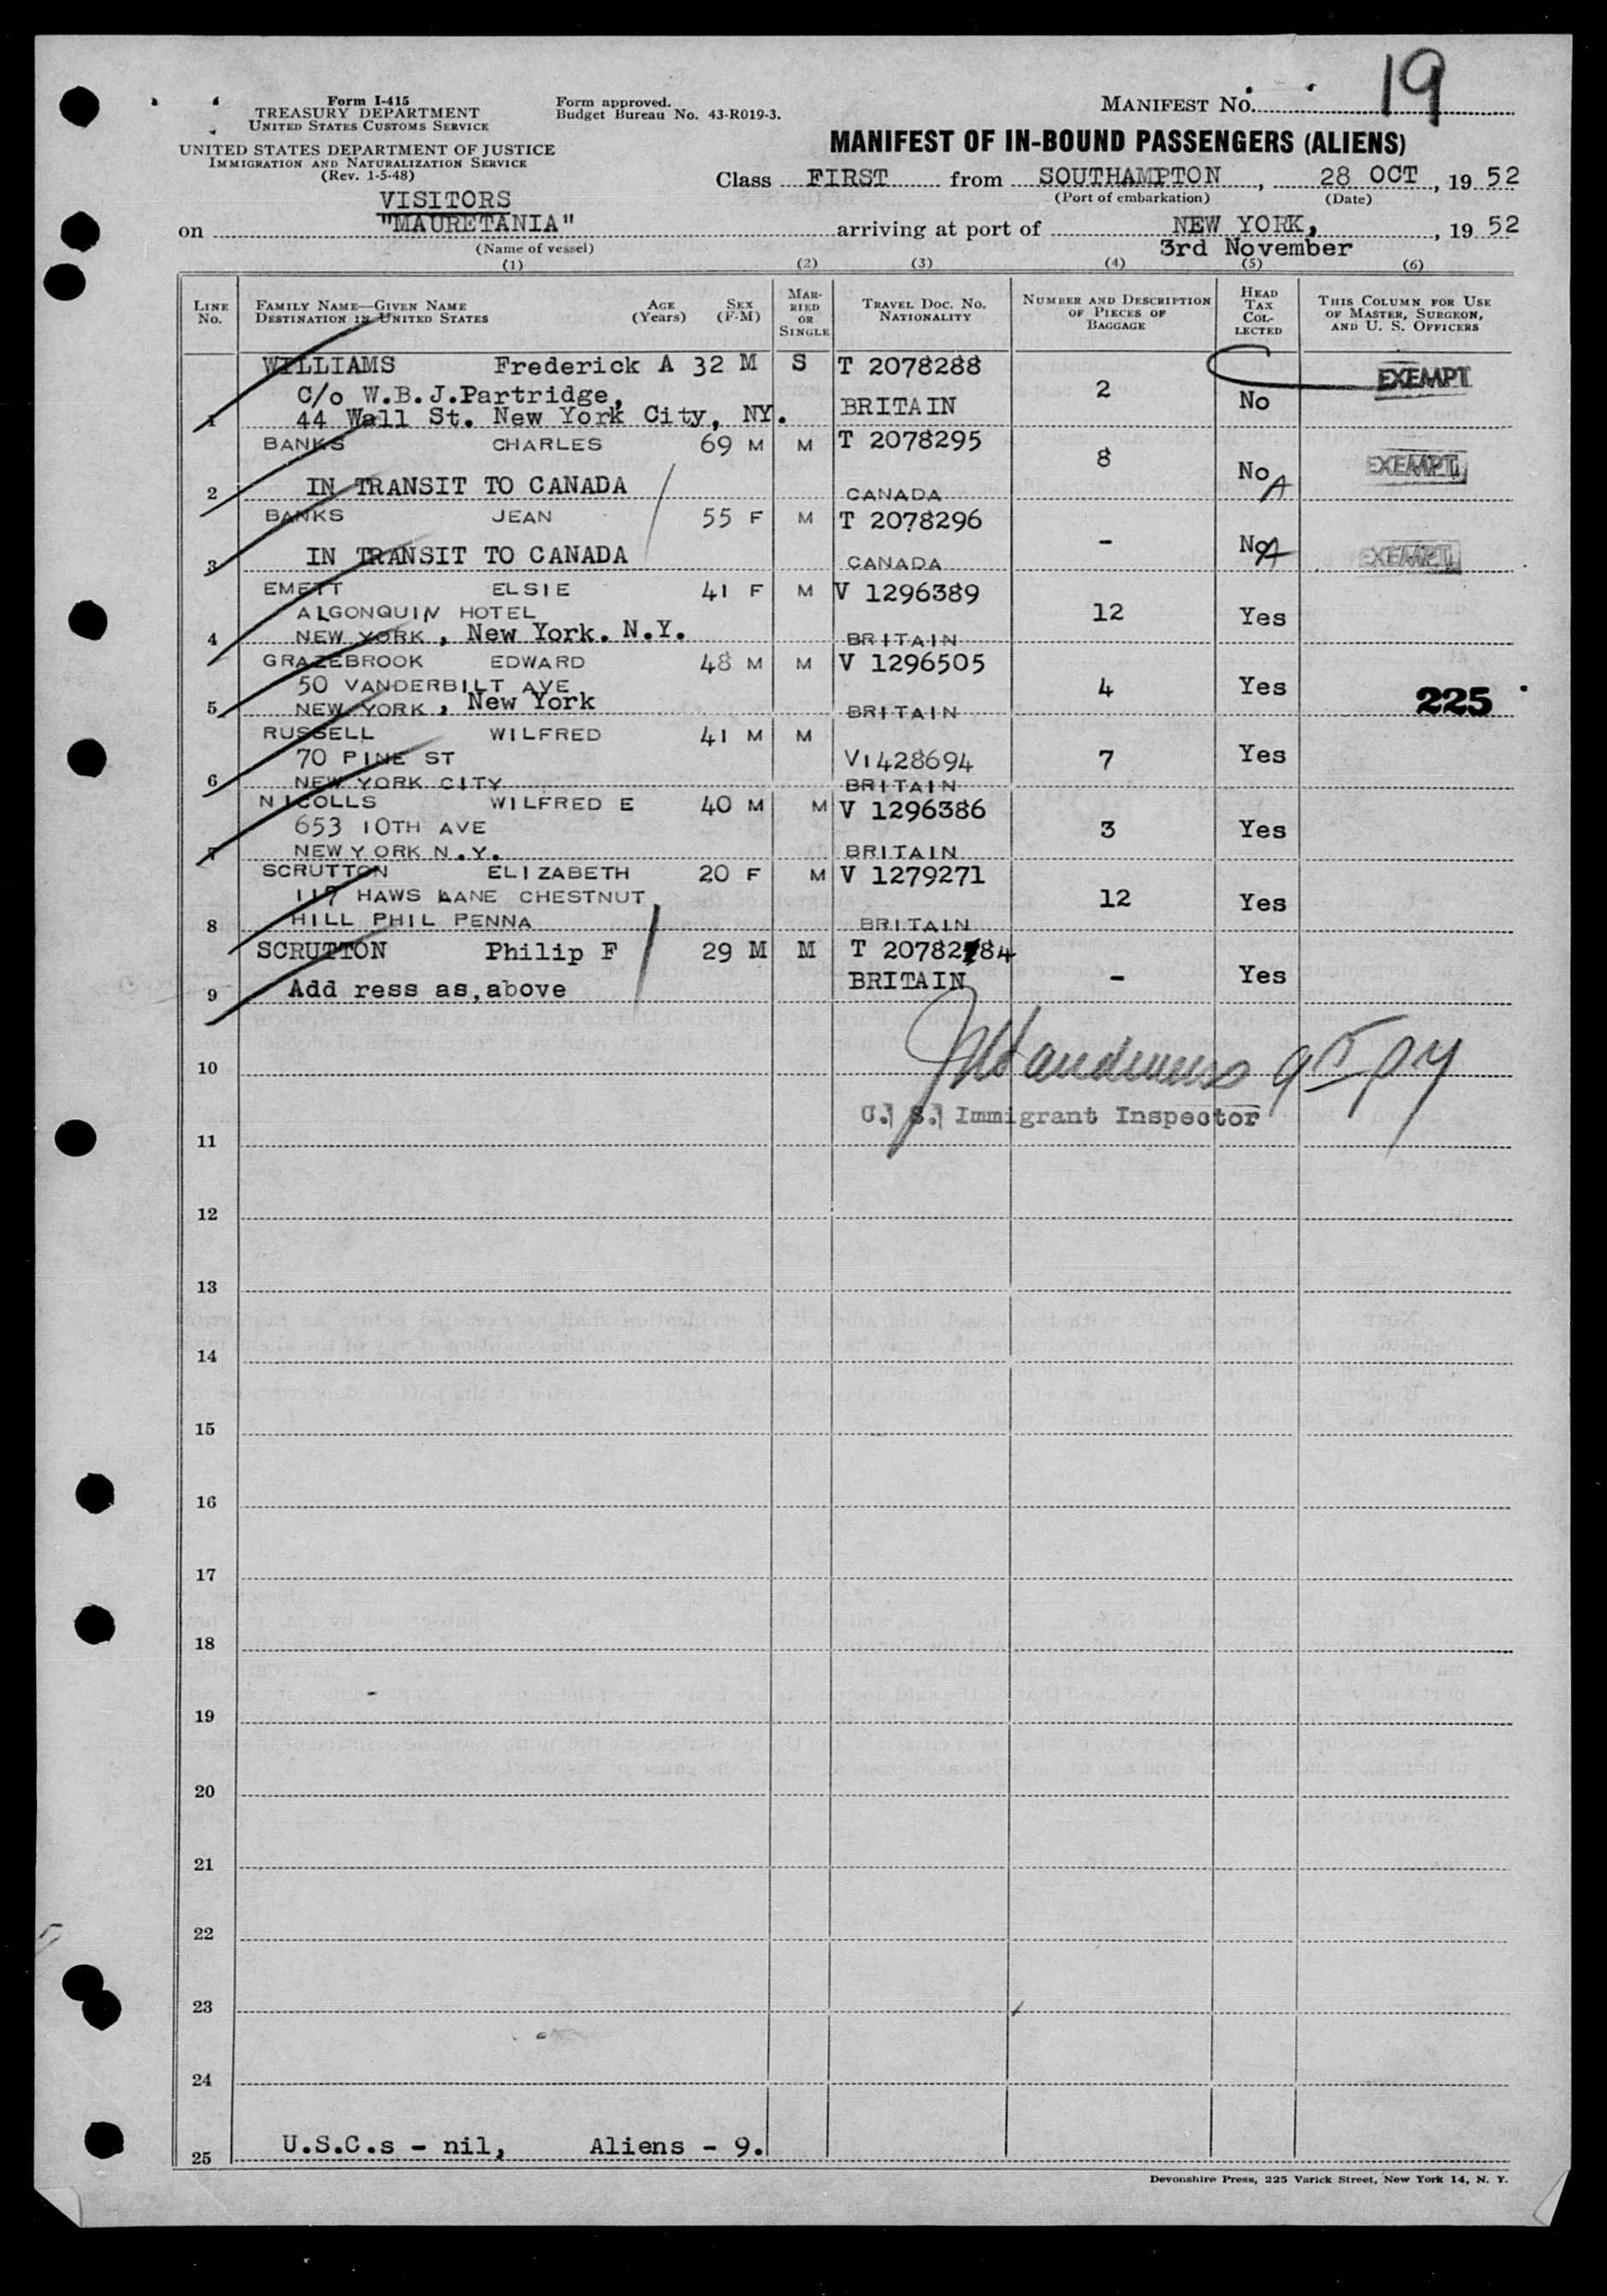 19
Form I-415
TREASURY DEPARTMENT
UNITED STATES CUSTOMS SERVICE
UNITED STATES DEPARTMENT OF JUSTICE
IMMIGRATION AND NATURALIZATION SERVICE
(Rev. 1-5-48)
Form approved.
Budget Bureau No. 43-R019-3.
MANIFEST No.
MANIFEST OF IN-BOUND PASSENGERS (ALIENS)
Class FIRST from SOUTHAMPTON, 28 OCT, 19 52
(Port of embarkation) (Date)
VISITORS
on "MAURETANIA" arriving at port of NEW YORK, , 19 52
(Name of vessel) 3rd November
(1) (2) (3) (4) (5) (6)
LINE No.
FAMILY NAME—GIVEN NAME
DESTINATION IN UNITED STATES
AGE (Years)
SEX (F-M)
MARRIED OR SINGLE
TRAVEL DOC. NO.
NATIONALITY
NUMBER AND DESCRIPTION OF PIECES OF BAGGAGE
HEAD TAX COLLECTED
THIS COLUMN FOR USE OF MASTER, SURGEON, AND U. S. OFFICERS
WILLIAMS Frederick A 32 M S T 2078288 EXEMPT
C/o W.B.J.Partridge, 2
1 44 Wall St. New York City, NY. BRITAIN No
BANKS CHARLES 69 M M T 2078295 8 EXEMPT
2 IN TRANSIT TO CANADA CANADA No A
BANKS JEAN 55 F M T 2078296 -
3 IN TRANSIT TO CANADA CANADA No A EXEMPT
EMETT ELSIE 41 F M V 1296389
ALGONQUIN HOTEL 12 Yes
4 NEW YORK, New York. N.Y. BRITAIN
GRAZEBROOK EDWARD 48 M M V 1296505
50 VANDERBILT AVE 4 Yes
5 NEW YORK, New York BRITAIN 225
RUSSELL WILFRED 41 M M
70 PINE ST V1428694 7 Yes
6 NEW YORK CITY BRITAIN
NICOLLS WILFRED E 40 M M V 1296386
653 10TH AVE 3 Yes
7 NEW YORK N.Y. BRITAIN
SCRUTTON ELIZABETH 20 F M V 1279271
117 HAWS LANE CHESTNUT 12 Yes
8 HILL PHIL PENNA BRITAIN
SCRUTTON Philip F 29 M M T
9 Add ress as,above BRITAIN - Yes
10
U. S. Immigrant Inspector
11
12
13
14
15
16
17
18
19
20
21
22
23
24
25 U.S.C.s - nil, Aliens - 9.
Devonshire Press, 225 Varick Street, New York 14, N. Y.